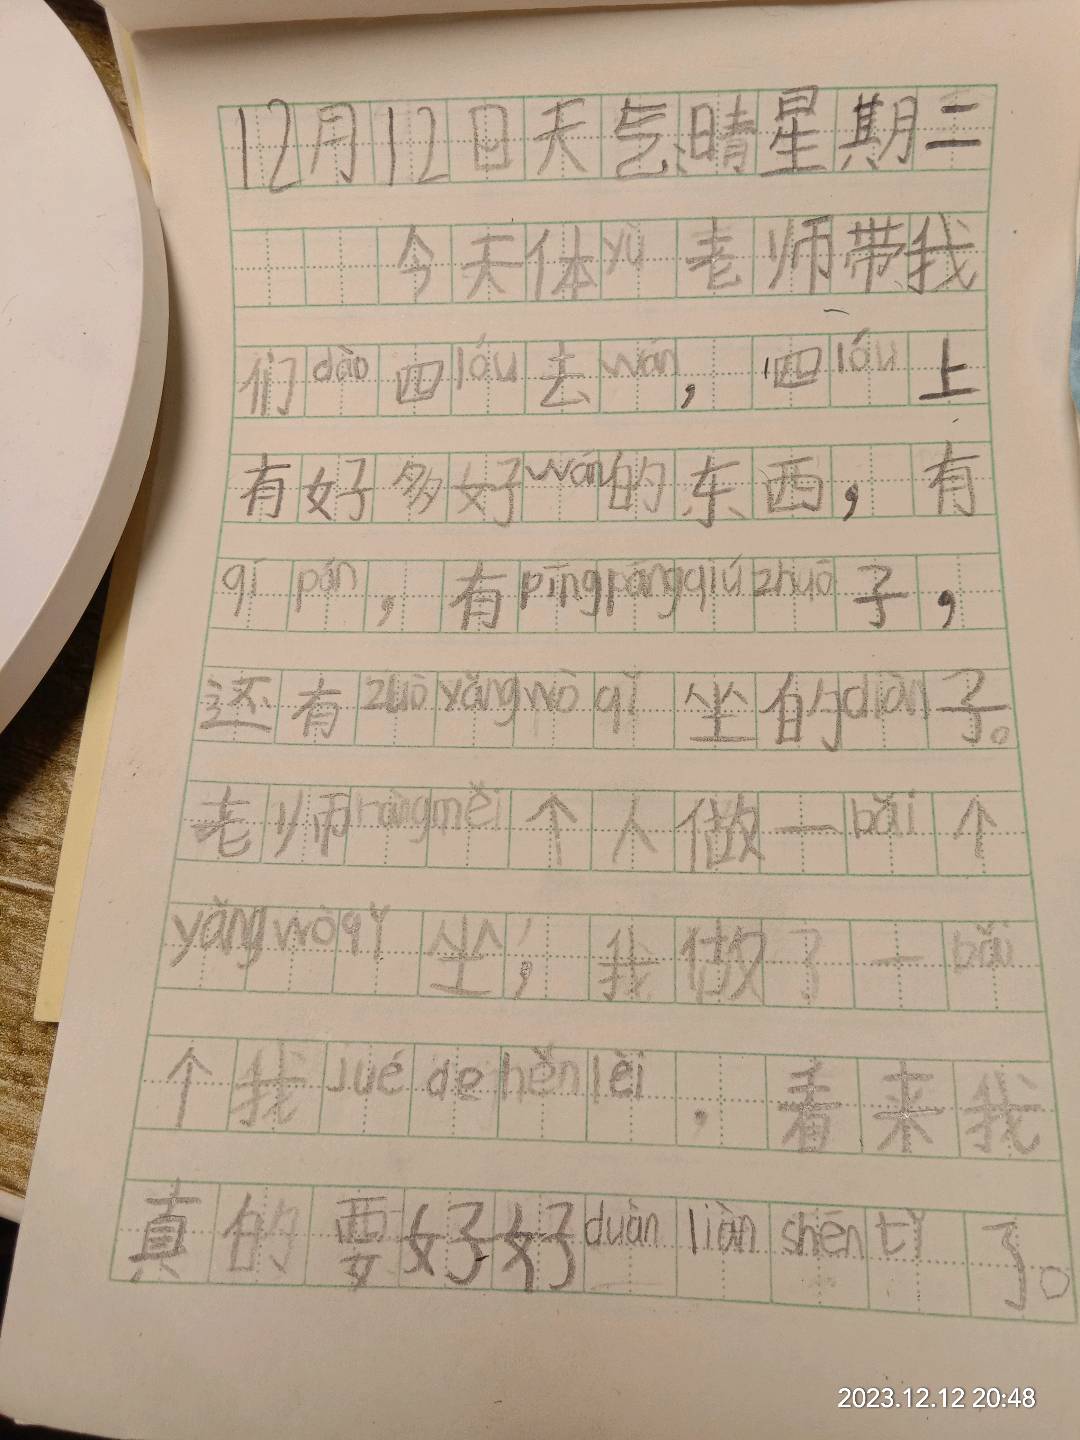 12月12日天气晴星期二
今天体yù老师带我
们dào四lóu去wán，四lóu上
有好多好wán的东西，有
qí pán，有pīngpāngqiú zhuō子，
还有zuò yǎng wò qǐ坐的diàn子。
老师ràng měi个人做一bǎi个
yǎng wò qǐ坐，我做了一bǎi
个我jué de hěn lèi，看来我
真的要好好duàn liàn shēn tǐ了。
2023.12.12 20:48